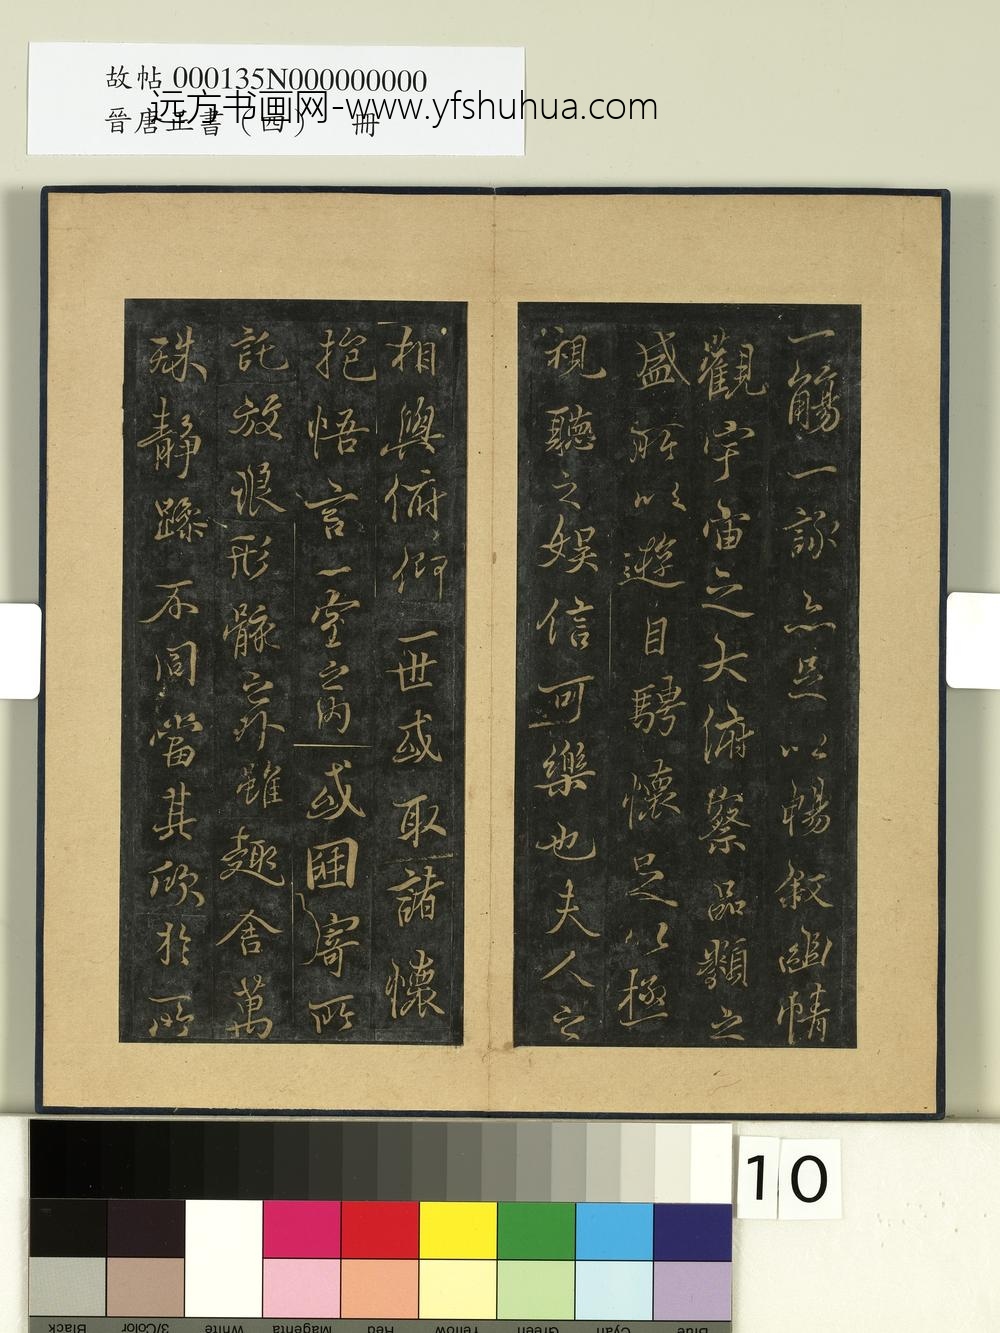 故帖 000135N000000000
远方书画网-www.yfshuhua.com
晉唐正書（四） 冊
一觴一詠亦足以暢敘幽情
觀宇宙之大俯察品類之
盛所以遊目騁懷足以極
視聽之娛信可樂也夫人之
相與俯仰一世或取諸懷
抱悟言一室之內或因寄所
託放浪形骸之外雖趣舍萬
殊靜躁不同當其欣於所
10
Black
3/Color
White
Magenta
Red
Yellow
Green
Cyan
Blue